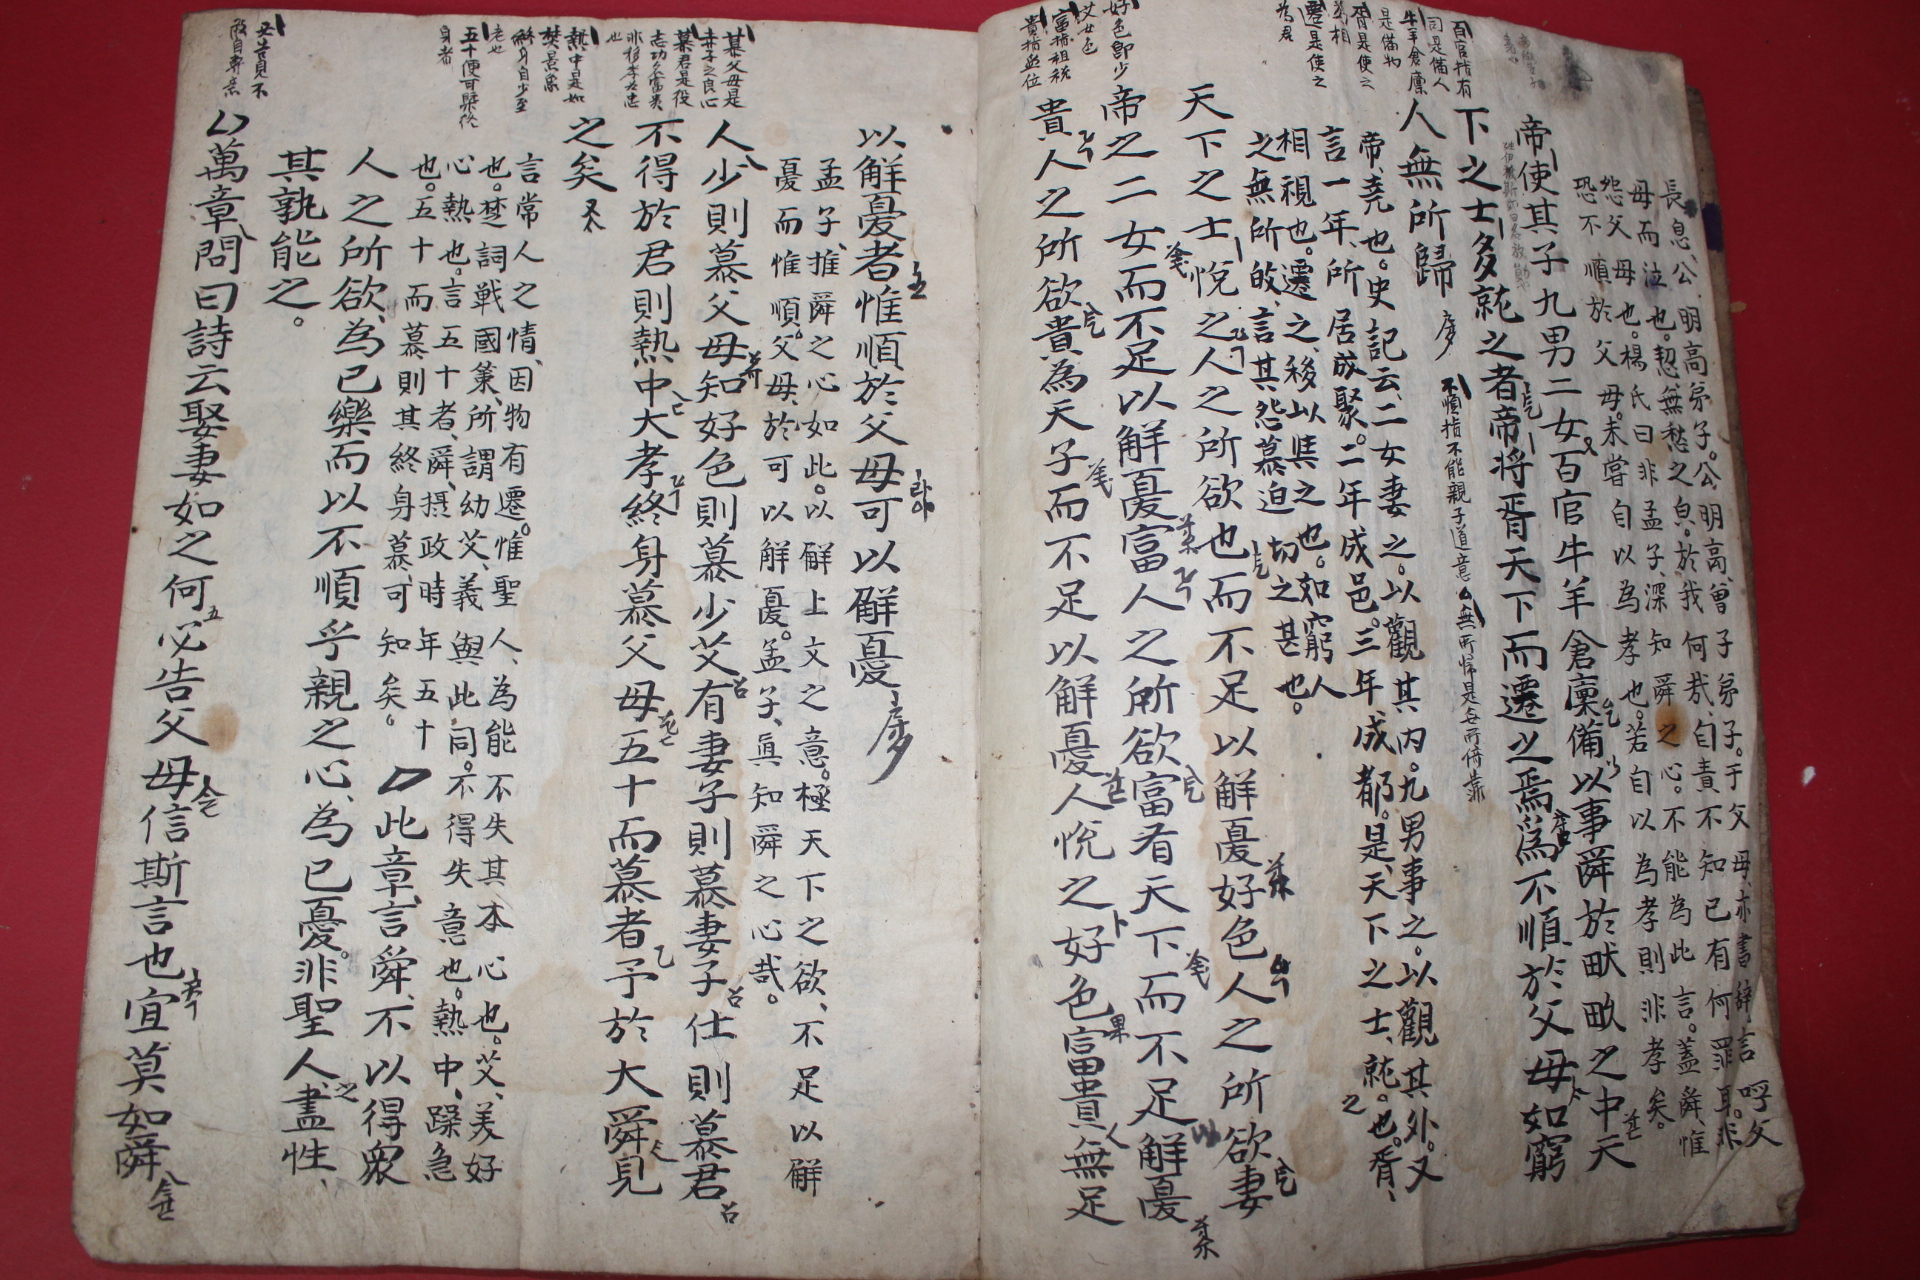 百官指有
司是備人
牛羊倉廩
是備物
胥是使之
相
遷是使之
為君
好色即少
艾女色
富指祖税
貴指與位
長息、公明高弟子。公明高、曾子弟子。于父母、亦書辞、言呼父
母而泣也。恝、無愁之皃。於我何哉、自責不知己有何罪耳。非
怨父母也。楊氏曰非孟子、深知舜之心。不能為此言。蓋舜、惟
恐不順於父母。未嘗自以為孝也。若自以為孝則非孝矣。
帝使其子九男二女百官牛羊倉廩備以事舜於畎畝之中天
下之士多就之者帝将胥天下而遷之焉為不順於父母如窮
人無所歸
不順指不能親子道意 無所歸是無所倚靠
帝、尭也。史記云、二女妻之。以觀其内。九男事之。以觀其外。又
言一年、所居成聚。二年成邑。三年、成都。是、天下之士、就之也。胥、
相視也。遷之、移以與之也。如窮人
之無所敀、言其怨慕迫切之甚也。
天下之士悅之人之所欲也而不足以解憂好色人之所欲妻
帝之二女而不足以解憂富人之所欲富有天下而不足解憂
貴人之所欲貴為天子而不足以解憂人悅之好色富貴無足
慕父母是
赤子之良心
慕君是役
志功名富貴
非移孝為忠
也
熱中是如
焚景象
終身自少至
老也
五十便可槩終
身者
必告見不
敢自專意
以解憂者惟順於父母可以解憂
孟子、推舜之心如此。以解上文之意。極天下之欲、不足以解
憂而惟順父母、於可以解憂。孟子、眞知舜之心哉。
人少則慕父母知好色則慕少艾有妻子則慕妻子仕則慕君
不得於君則熱中大孝終身慕父母五十而慕者予於大舜見
之矣
言常人之情、因物有遷。惟聖人、為能不失其本心也。艾、美好
也。楚詞戰國策、所謂幼艾、義與此同。不得失意也。熱中、躁急
心熱也。言五十者、舜、摂政時年五十
也。五十而慕則其終身慕、可知矣。
此章、言舜、不以得衆
人之所欲、為己樂而以不順乎親之心、為己憂。非聖人、盡之性、
其孰能之。
萬章問曰詩云娶妻如之何必告父母信斯言也宜莫如舜